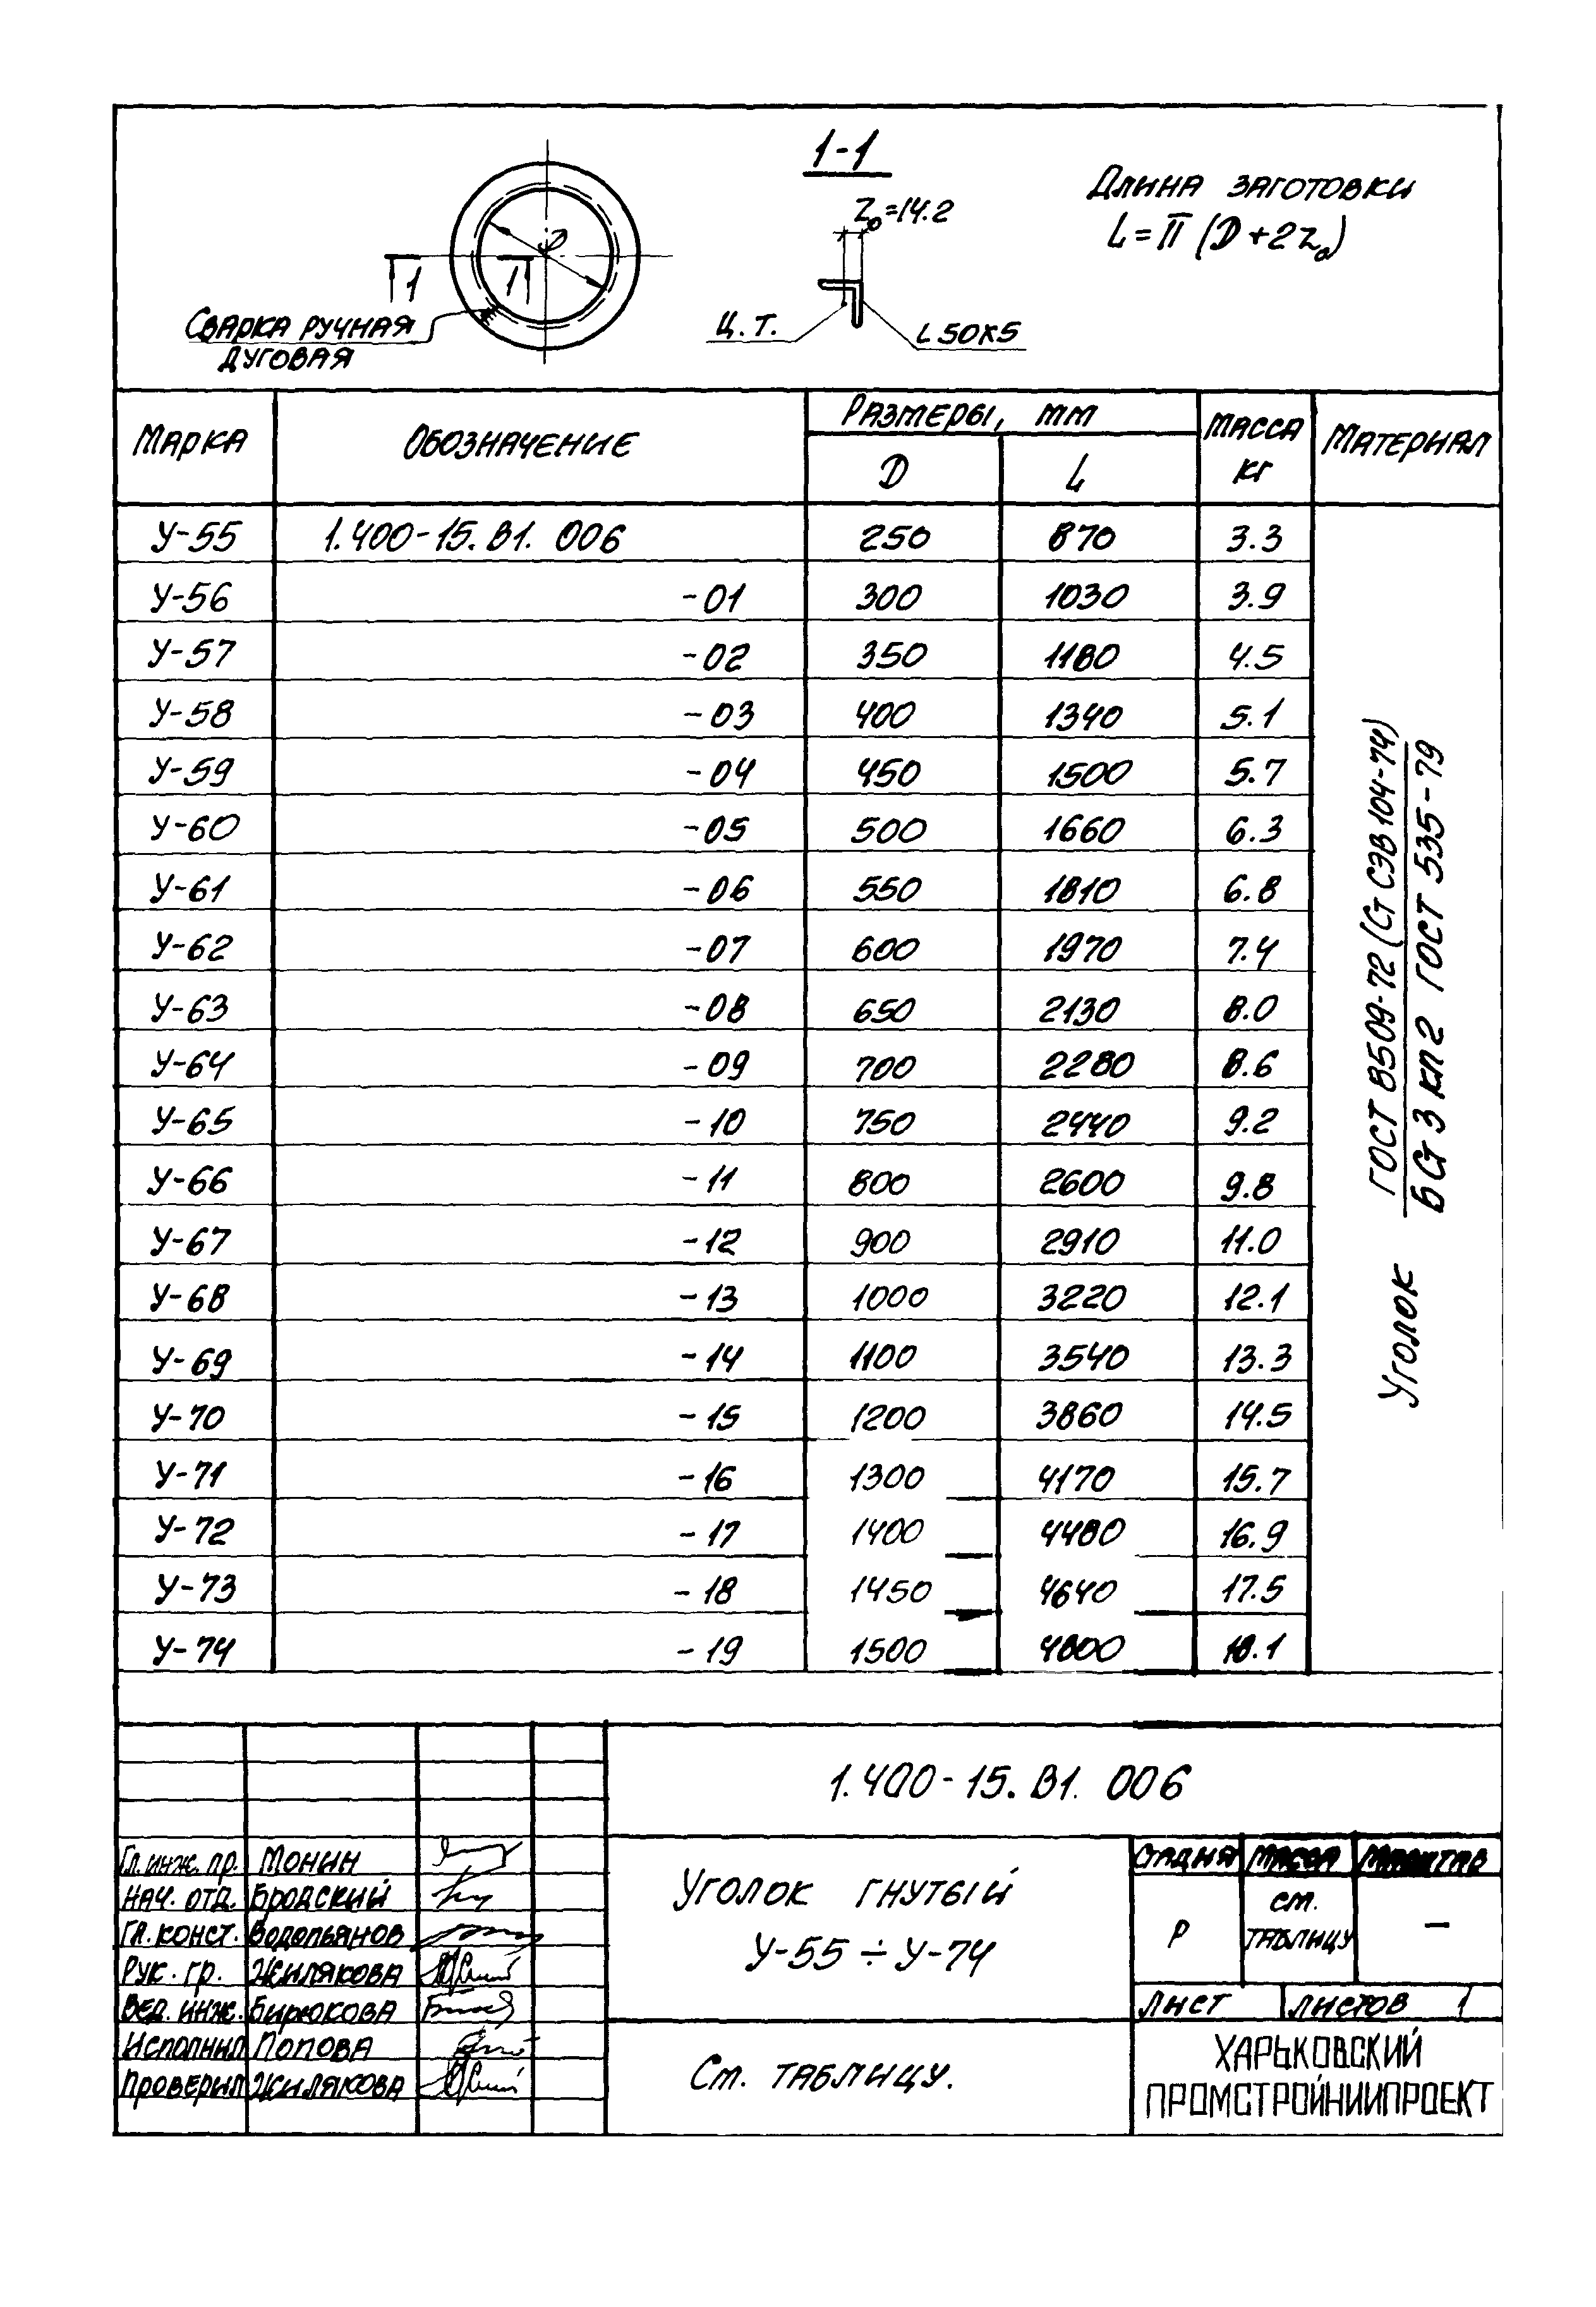 1-1
Z₀=14.2
Длина заготовки
L=π (D+2Z₀)
D
1 1
Сварка ручная
дуговая
Ц.Т.
L 50х5
Марка Обозначение Размеры, мм Масса кг Материал
D L
У-55 1.400-15.В1. 006 250 870 3.3
У-56 -01 300 1030 3.9
У-57 -02 350 1180 4.5
У-58 -03 400 1340 5.1
У-59 -04 450 1500 5.7
У-60 -05 500 1660 6.3
У-61 -06 550 1810 6.8
У-62 -07 600 1970 7.4
У-63 -08 650 2130 8.0
У-64 -09 700 2280 8.6
У-65 -10 750 2440 9.2
У-66 -11 800 2600 9.8
У-67 -12 900 2910 11.0
У-68 -13 1000 3220 12.1
У-69 -14 1100 3540 13.3
У-70 -15 1200 3860 14.5
У-71 -16 1300 4170 15.7
У-72 -17 1400 4480 16.9
У-73 -18 1450 4640 17.5
У-74 -19 1500 4800 18.1
Уголок ГОСТ 8509-72 (Ст СЭВ 104-74)
БСт 3 кп2 ГОСТ 535-79
1.400-15.В1. 006
Гл. инж. пр. Монин
Нач. отд. Бродский
Гл. конст. Водопьянов
Рук. гр. Жилякова
Вед. инж. Бирюкова
Исполнил Попова
Проверил Жилякова
Уголок гнутый
У-55 ÷ У-74
Стадия Масса Масштаб
Р см. таблицу –
Лист Листов 1
См. таблицу.
ХАРЬКОВСКИЙ
ПРОМСТРОЙНИИПРОЕКТ